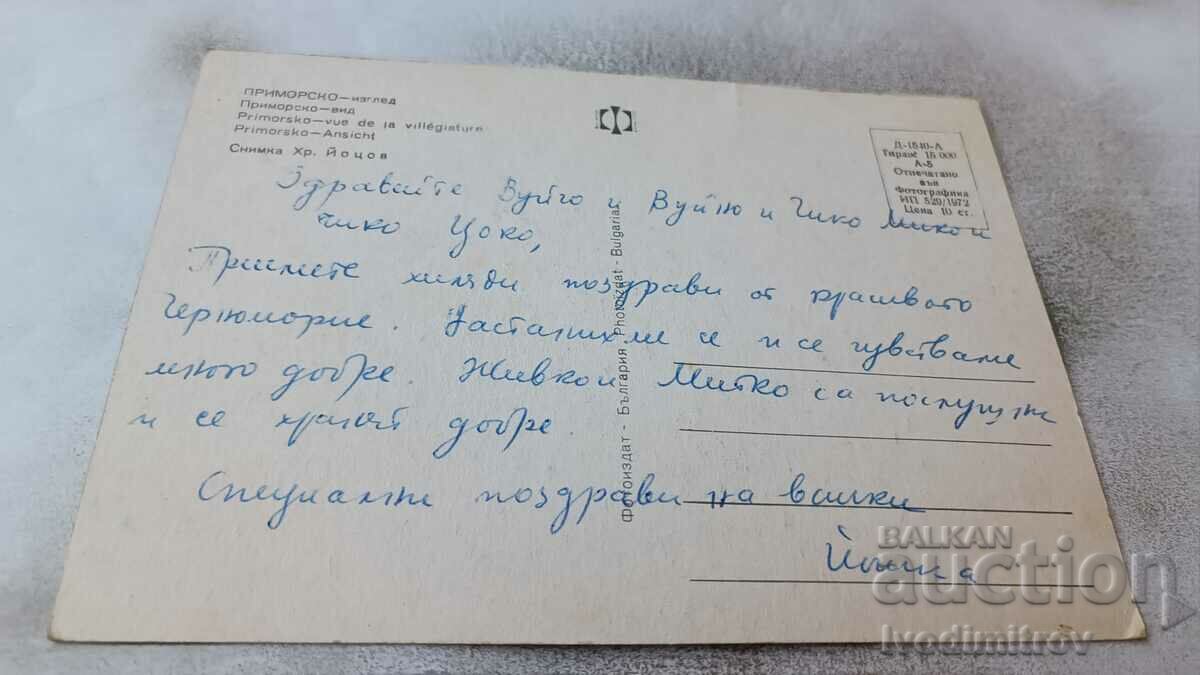 ПРИМОРСКО—изглед
Приморско—вид
Primorsko—vue de la villégiature
Primorsko—Ansicht
Снимка Хр. Йоцов
Д-1540-А
Тираж 15 000
А-5
Отпечатано
във
Фотографика
ИП 529/1972
Цена 10 ст.
Здравейте Вуйчо и Вуйно и Чико Мико и
чико Цоко,
Приемете хиляди поздрави от
Черноморие. се и се чувстваме
много добре. Живко и Митко са послушни
и се хранят добре.
Специални поздрави на всички
Фотоиздат - България - Photoizdat - Bulgarian
BALKAN
auction
Ivodimitrov